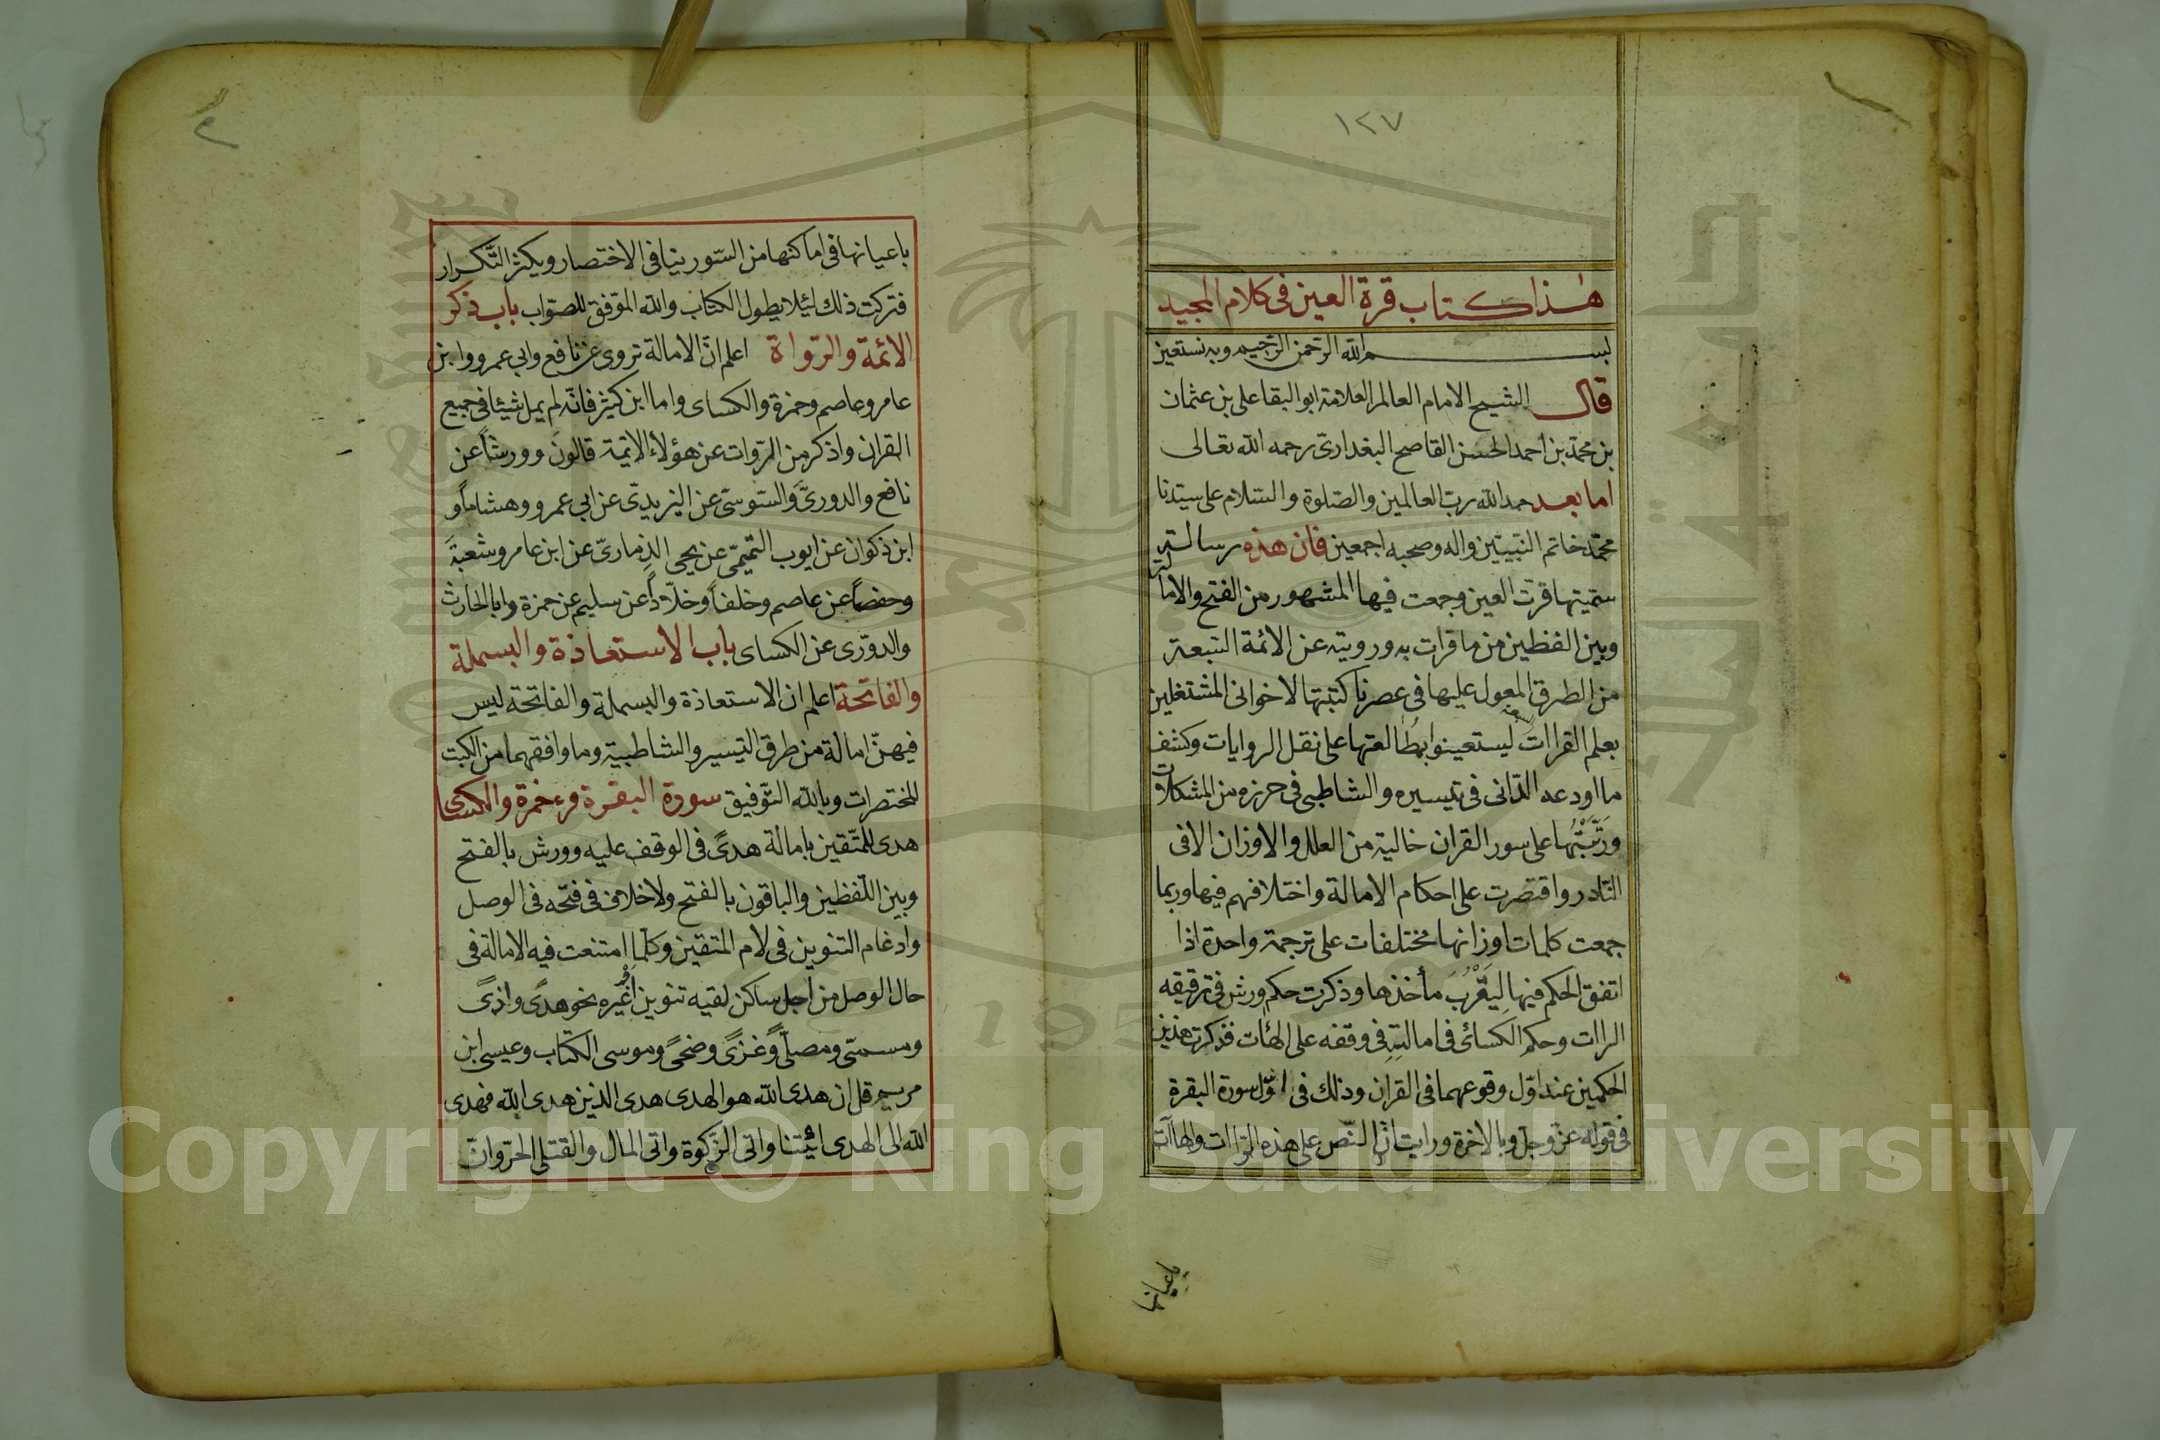 ١٢٧
هذا كتاب قرة العين فى كلام المجيد
بسم الله الرحمن الرحيم وبه نستعين
قال الشيخ الامام العالم العلامة ابو البقا على بن عثمان
بن محمد بن احمد الحسن القاصح البغدادى رحمه الله تعالى
اما بعد حمد الله رب العالمين والصلوة والسلام على سيدنا
محمد خاتم النبيين واله وصحبه اجمعين فان هذه رسالة
سميتها قرت العين وجمعت فيها المشهور من الفتح والامالة
وبين الفظين من ما قرات به ورويته عن الائمة السبعة
من الطرق المعول عليها فى عصرنا كتبتها لاخوانى المشتغلين
بعلم القراات ليستعينوا بمطالعتها على نقل الروايات وكشف
ما اودعه الدانى فى تيسيره والشاطبى فى حرزه من المشكلات
ورتبتها على سور القران خالية من العلل والاوزان الا فى
النادر واقتصرت على احكام الامالة واختلافهم فيها وربما
جمعت كلمات اوزانها مختلفات على ترجمة واحدة اذا
اتفق الحكم فيها ليقرب مأخذها وذكرت حكم ورش فى ترقيقه
الراات وحكم الكسائى فى امالته فى وقفه على الهاآت فذكرت هذين
الحكمين عند اول وقوعهما فى القران وذلك فى اول سورة البقرة
فى قوله عز وجل وبالاخرة ورايت ان النص على هذه الراات والهاآت
باعيانها
باعيانها فى اماكنها من السور ينافى الاختصار ويكثر التكرار
فتركت ذلك ليئلا يطول الكتاب والله الموفق للصواب باب ذكر
الائمة والرواة اعلم ان الامالة تروى عن نافع وابى عمرو وابن
عامر وعاصم وحمزة والكساى واما ابن كثير فانه لم يمل شيئا فى جميع
القران واذكر من الروات عن هؤلاء الائمة قالون وورشا عن
نافع والدورى والسوسى عن اليزيدى عن ابى عمرو وهشاما و
ابن ذكوان عن ايوب التميمى عن يحيى الذمارى عن ابن عامر وشعبة
وحفصا عن عاصم وخلفا وخلادا عن سليم عن حمزة وابا الحارث
والدورى عن الكساى باب الاستعاذة والبسملة
والفاتحة اعلم ان الاستعاذة والبسملة والفاتحة ليس
فيهن امالة من طرق التيسير والشاطبية وما وافقهما من الكتب
المختصرات وبالله التوفيق سورة البقرة قرء حمزة والكساى
هدى للمتقين بامالة هدى فى الوقف عليه وورش بالفتح
وبين اللفظين والباقون بالفتح ولا خلاف فى فتحه فى الوصل
وادغام التنوين فى لام المتقين وكلما امتنعت فيه الامالة فى
حال الوصل من اجل ساكن لقيه تنوين او غيره نحو هدى واذى
ومسمى ومصلى وغزى وضحى وموسى الكتاب وعيسى ابن
مريم قل ان هدى الله هو الهدى هدى الذين هدى الله فهدى
الله الى الهدى ائتنا واتى الزكوة واتى المال والقتلى الحر وان
Copyright © King Saud University